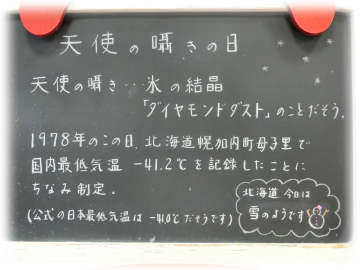 天使の囁きの日
天使の囁き…氷の結晶
「ダイヤモンドダスト」のことだそう。
1978年のこの日、北海道幌加内町母子里で
国内最低気温 -41.2℃を記録したことに
ちなみ制定.
(公式の日本最低気温は -41.0℃だそうです)
北海道 今日は
雪のようです